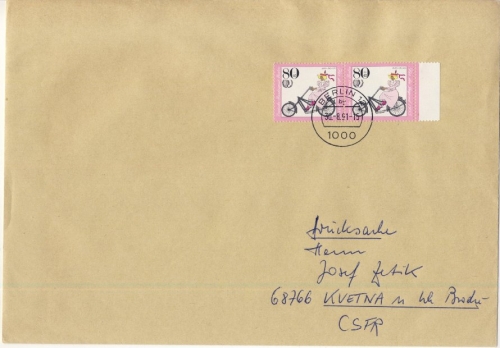 80 80
BERLIN 12
-8.91-15
1000
Drucksache
Herrn
Josef Zetik
68766 KVETNA u Uh. Brodu
CSFR